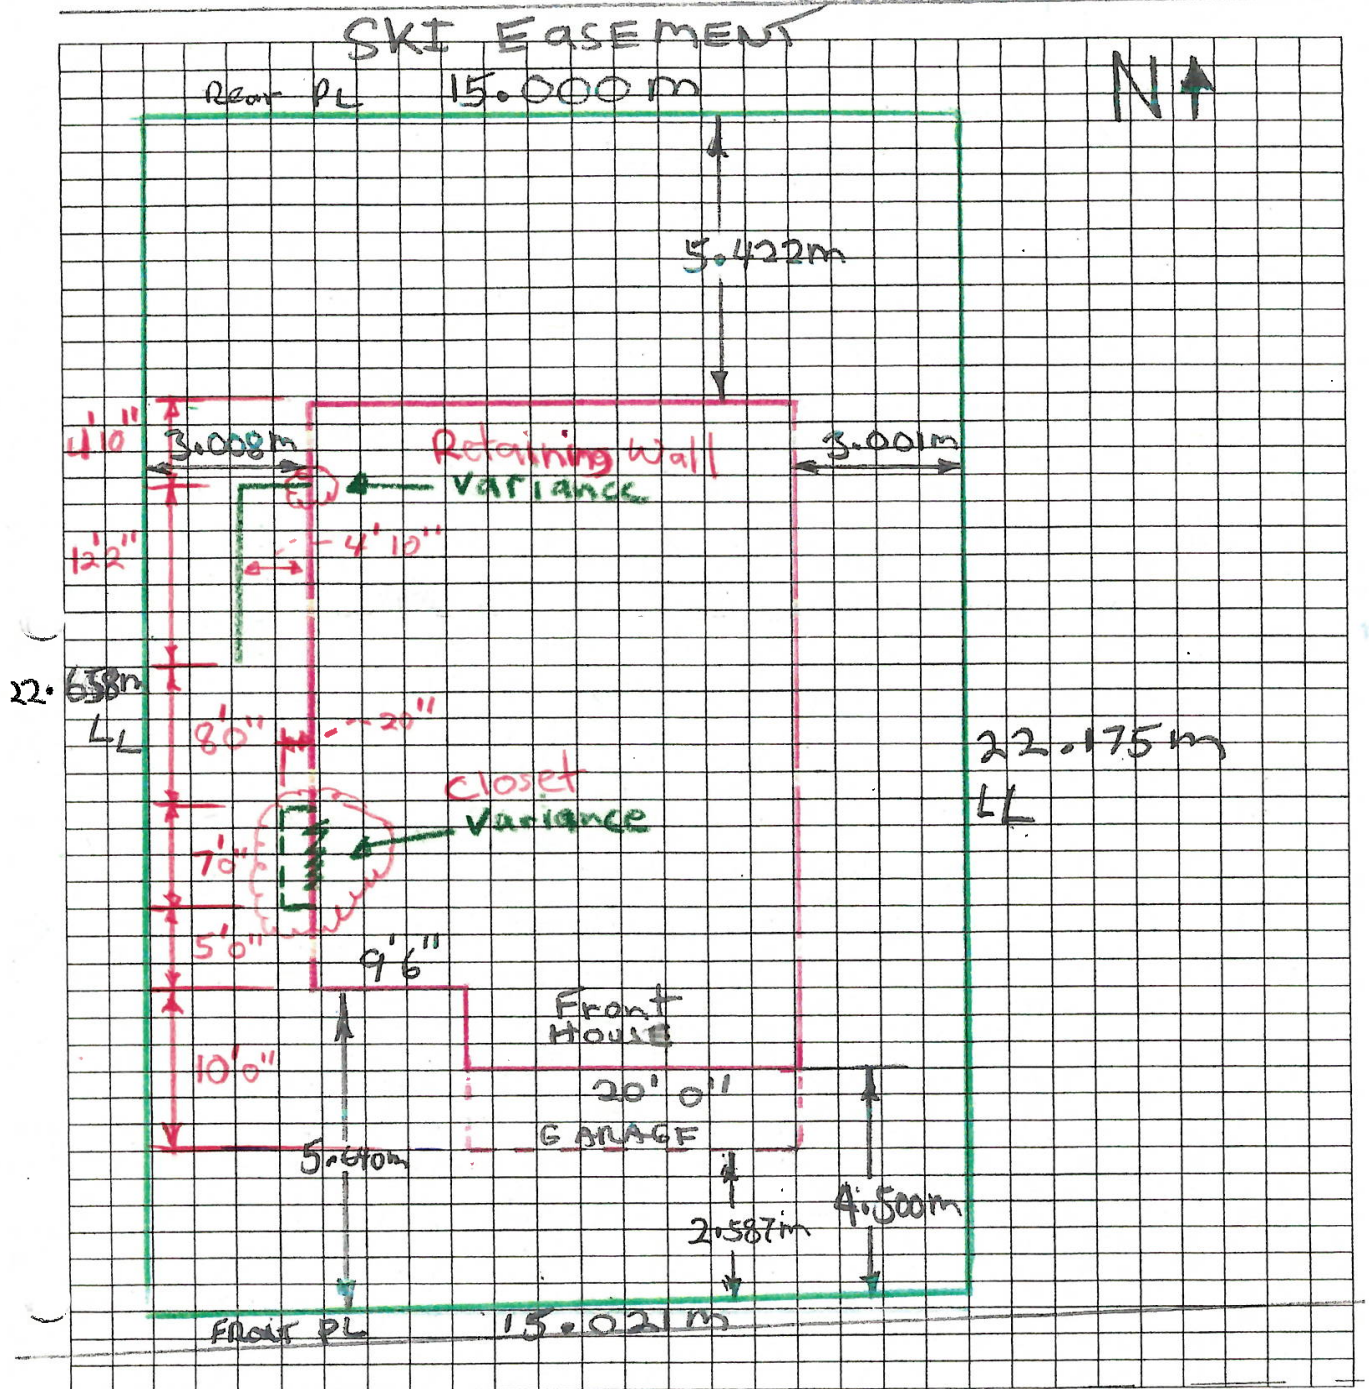 SKI EASEMENT
Rear PL 15.000m
N
5.422m
4'10"
3.008m
Retaining Wall
3.001m
Variance
12'2"
4'10"
22.658m
LL
8'0"
20"
22.175m
LL
Closet
Variance
7'0"
5'0"
9'6"
Front
House
10'0"
20'0"
GARAGE
5.640m
4.500m
2.587m
FRONT PL 15.021m